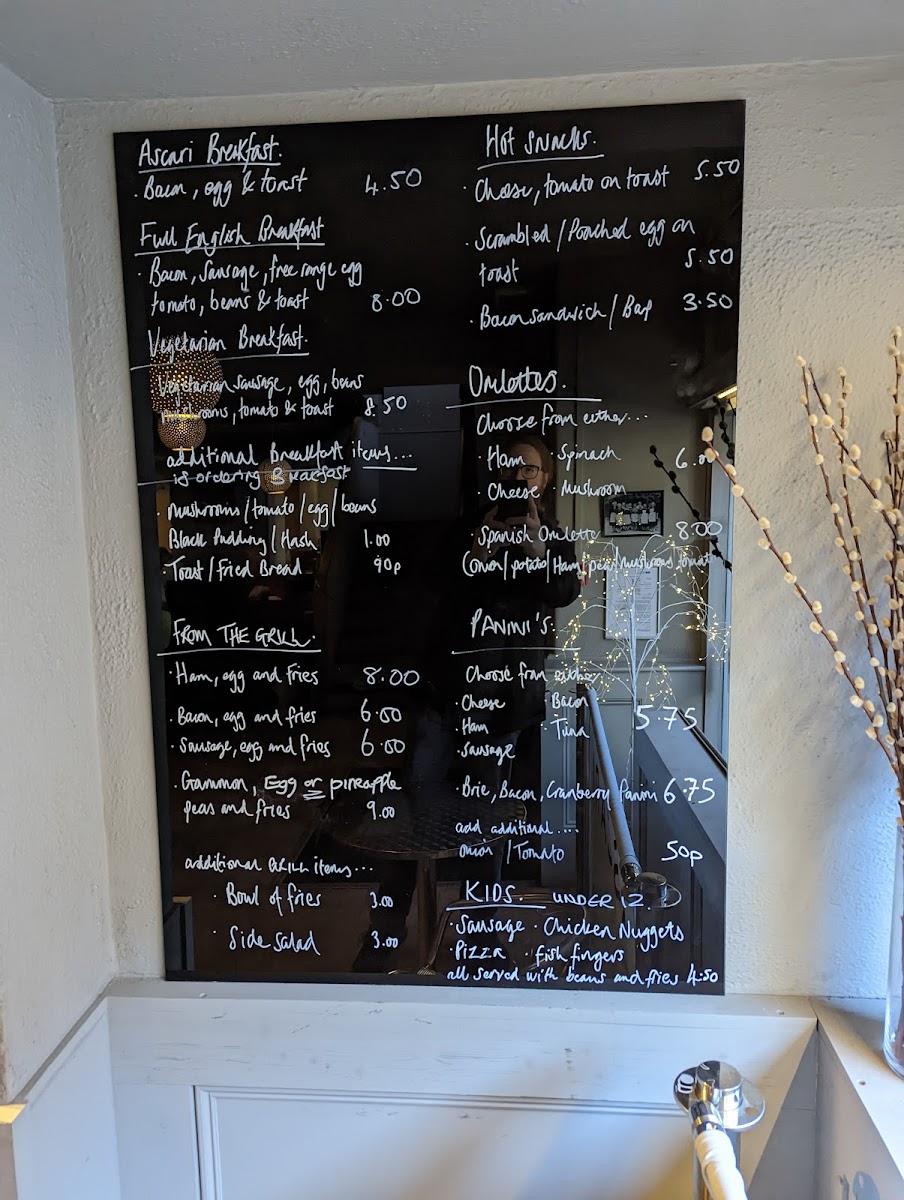 Ascari Breakfast.
· Bacon, egg & toast 4.50
Full English Breakfast
· Bacon, Sausage, free range egg
tomato, beans & toast 8.00
Vegetarian Breakfast.
Vegetarian sausage, egg, beans
mushrooms, tomato & toast 8.50
additional Breakfast items...
if ordering Breakfast
· mushrooms/tomato/egg/beans
Black Pudding/Hash 1.00
· Toast/Fried Bread 90p
FROM THE GRILL.
· Ham, egg and fries 8.00
· Bacon, egg and fries 6.00
· Sausage, egg and fries 6.00
· Gammon, Egg or pineapple
peas and fries 9.00
additional GRILL items...
· Bowl of fries 3.00
· Side salad 3.00
Hot Snacks.
· Cheese, tomato on toast 5.50
· Scrambled/Poached egg on
toast 5.50
· Bacon sandwich/Bap 3.50
Omlettes.
Choose from either...
· Ham · Spinach 6.00
· Cheese · Mushroom
· Spanish Omlette 8.00
(onion/potato/Ham/pea/mushroom/tomato
PANINI'S.
Choose from either
· Cheese · Bacon
· Ham · Tuna 5.75
· Sausage
· Brie, Bacon, Cranberry Panini 6.75
add additional....
onion/Tomato 50p
KIDS. UNDER 12.
· Sausage · Chicken Nuggets
· Pizza · fish fingers
all served with beans and fries 4.50